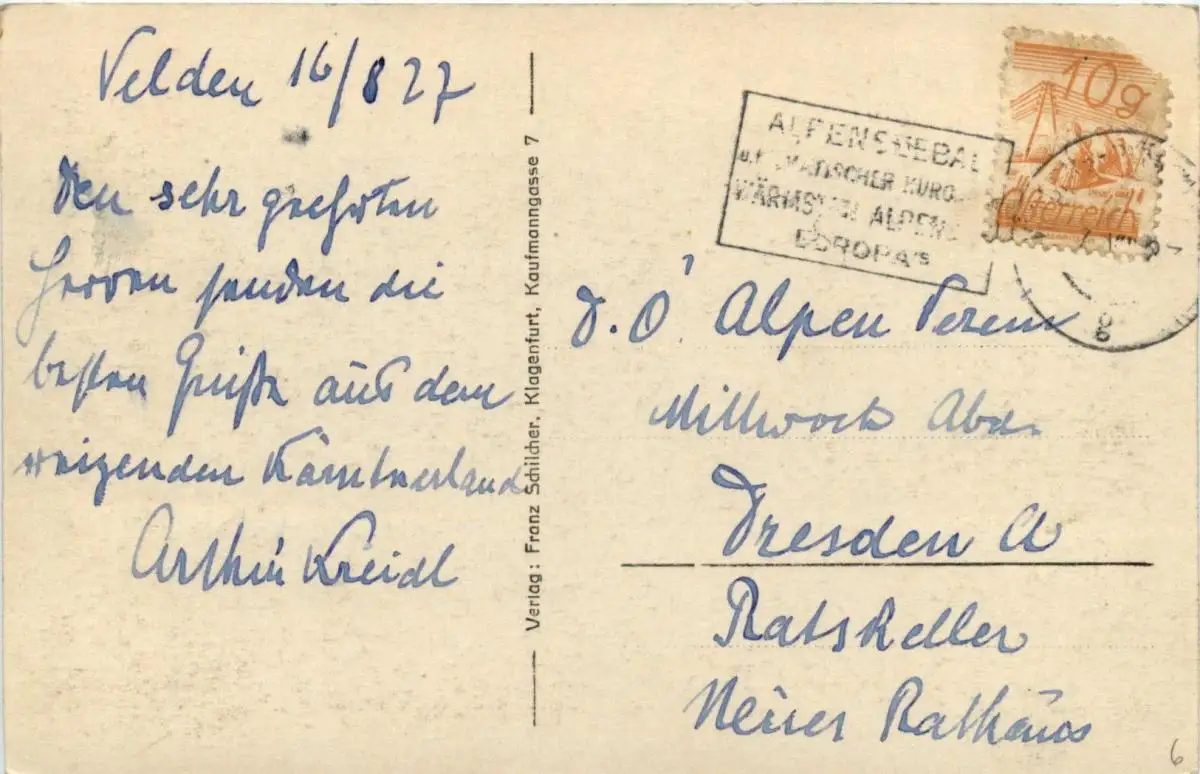 Velden 16/8 27
Den sehr geehrten
Herren senden die
besten Grüße aus dem
reizenden Kärntnerland
Arthur Kreidl
Verlag: Franz Schilcher, Klagenfurt, Kaufmanngasse 7
10g
Österreich
ALPENSEEBAD
KURO
WÄRMSTEN ALPENS
EUROPA's
D. Ö Alpen Verein
Mittwoch Abd.
Dresden A
Ratskeller
Neues Rathaus
6